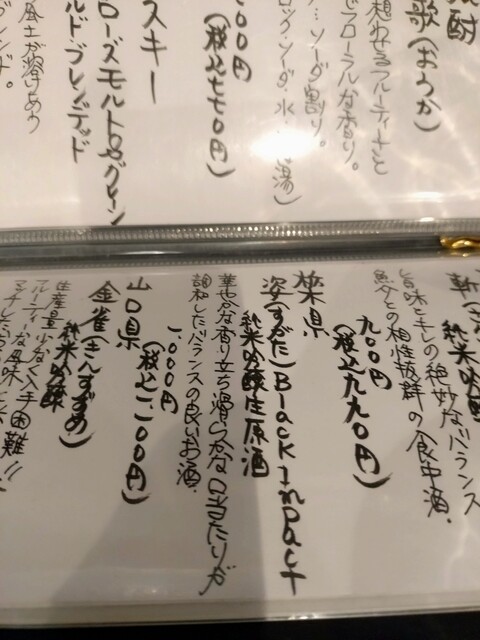 焼酎
歌(おうか)
想わせるフルーティーさと
フローラルな香り。
ソーダ割り。
ロック、ソーダ、水
湯)
(税込七七〇円)
スキー
ローズモルト&グレーン
ルドブレンデッド
風土が溶けあう
純米吟醸
旨味とキレの絶妙なバランス
魚介との相性抜群の食中酒。
九〇〇円
(税込九九〇円)
栃木県
姿(すがた)Black Impact
純米吟醸生原酒
華やかな香り立ち滑らかな口当たりが
調和したバランスの良いお酒。
一、〇〇〇円
(税込一、一〇〇円)
山口県
金雀(きんすずめ)
純米吟醸
生産量少なく入手困難!!
フルーティーな風味